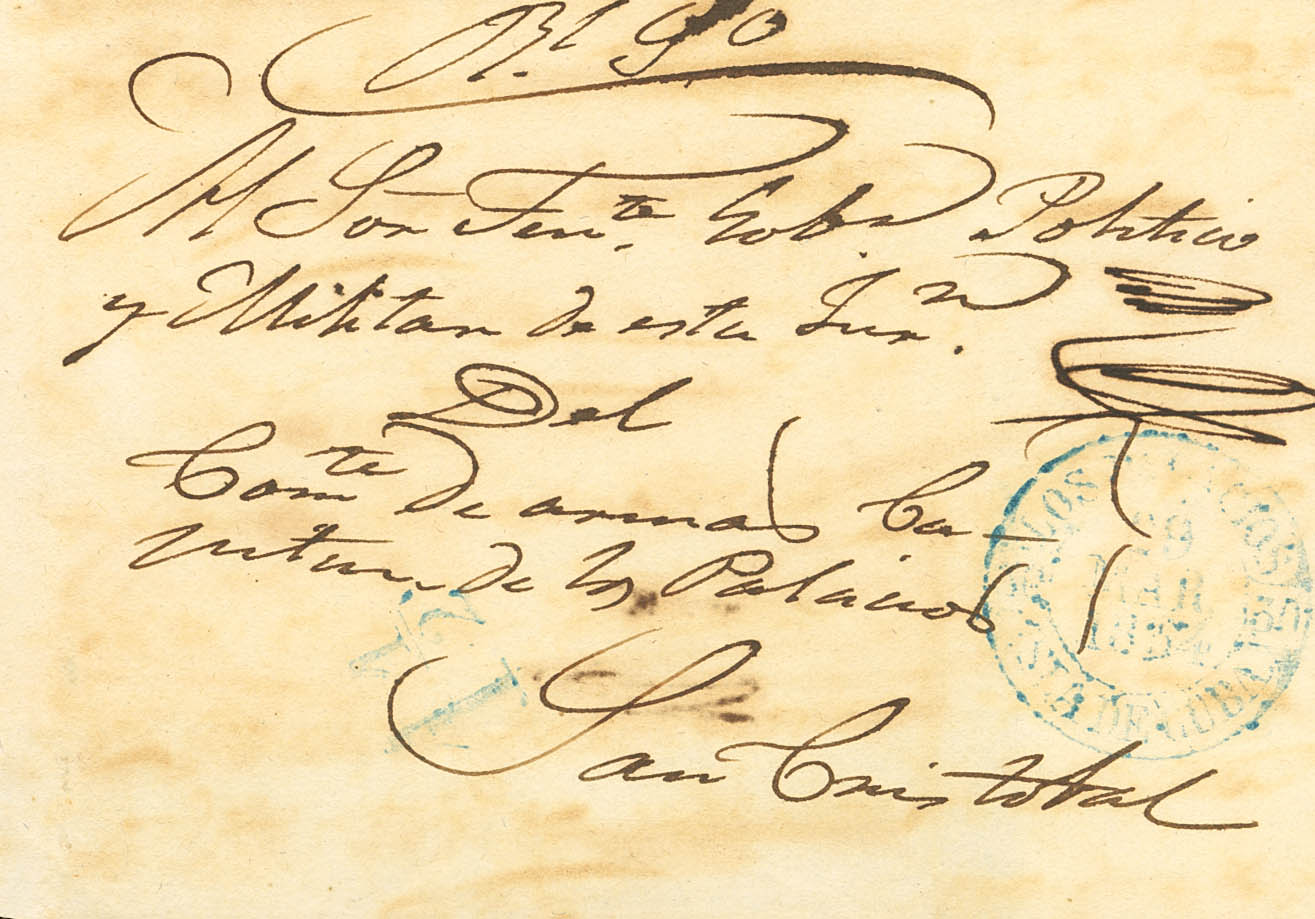 Rl Sº
Al Sor Tente. Gobor. Politico
y Militar de esta Juron.
Del
Comte de armas Ca-
pitan de los Palacios
San Cristobal
LOS PALACIOS
29
MAR
ISLA DE CUBA